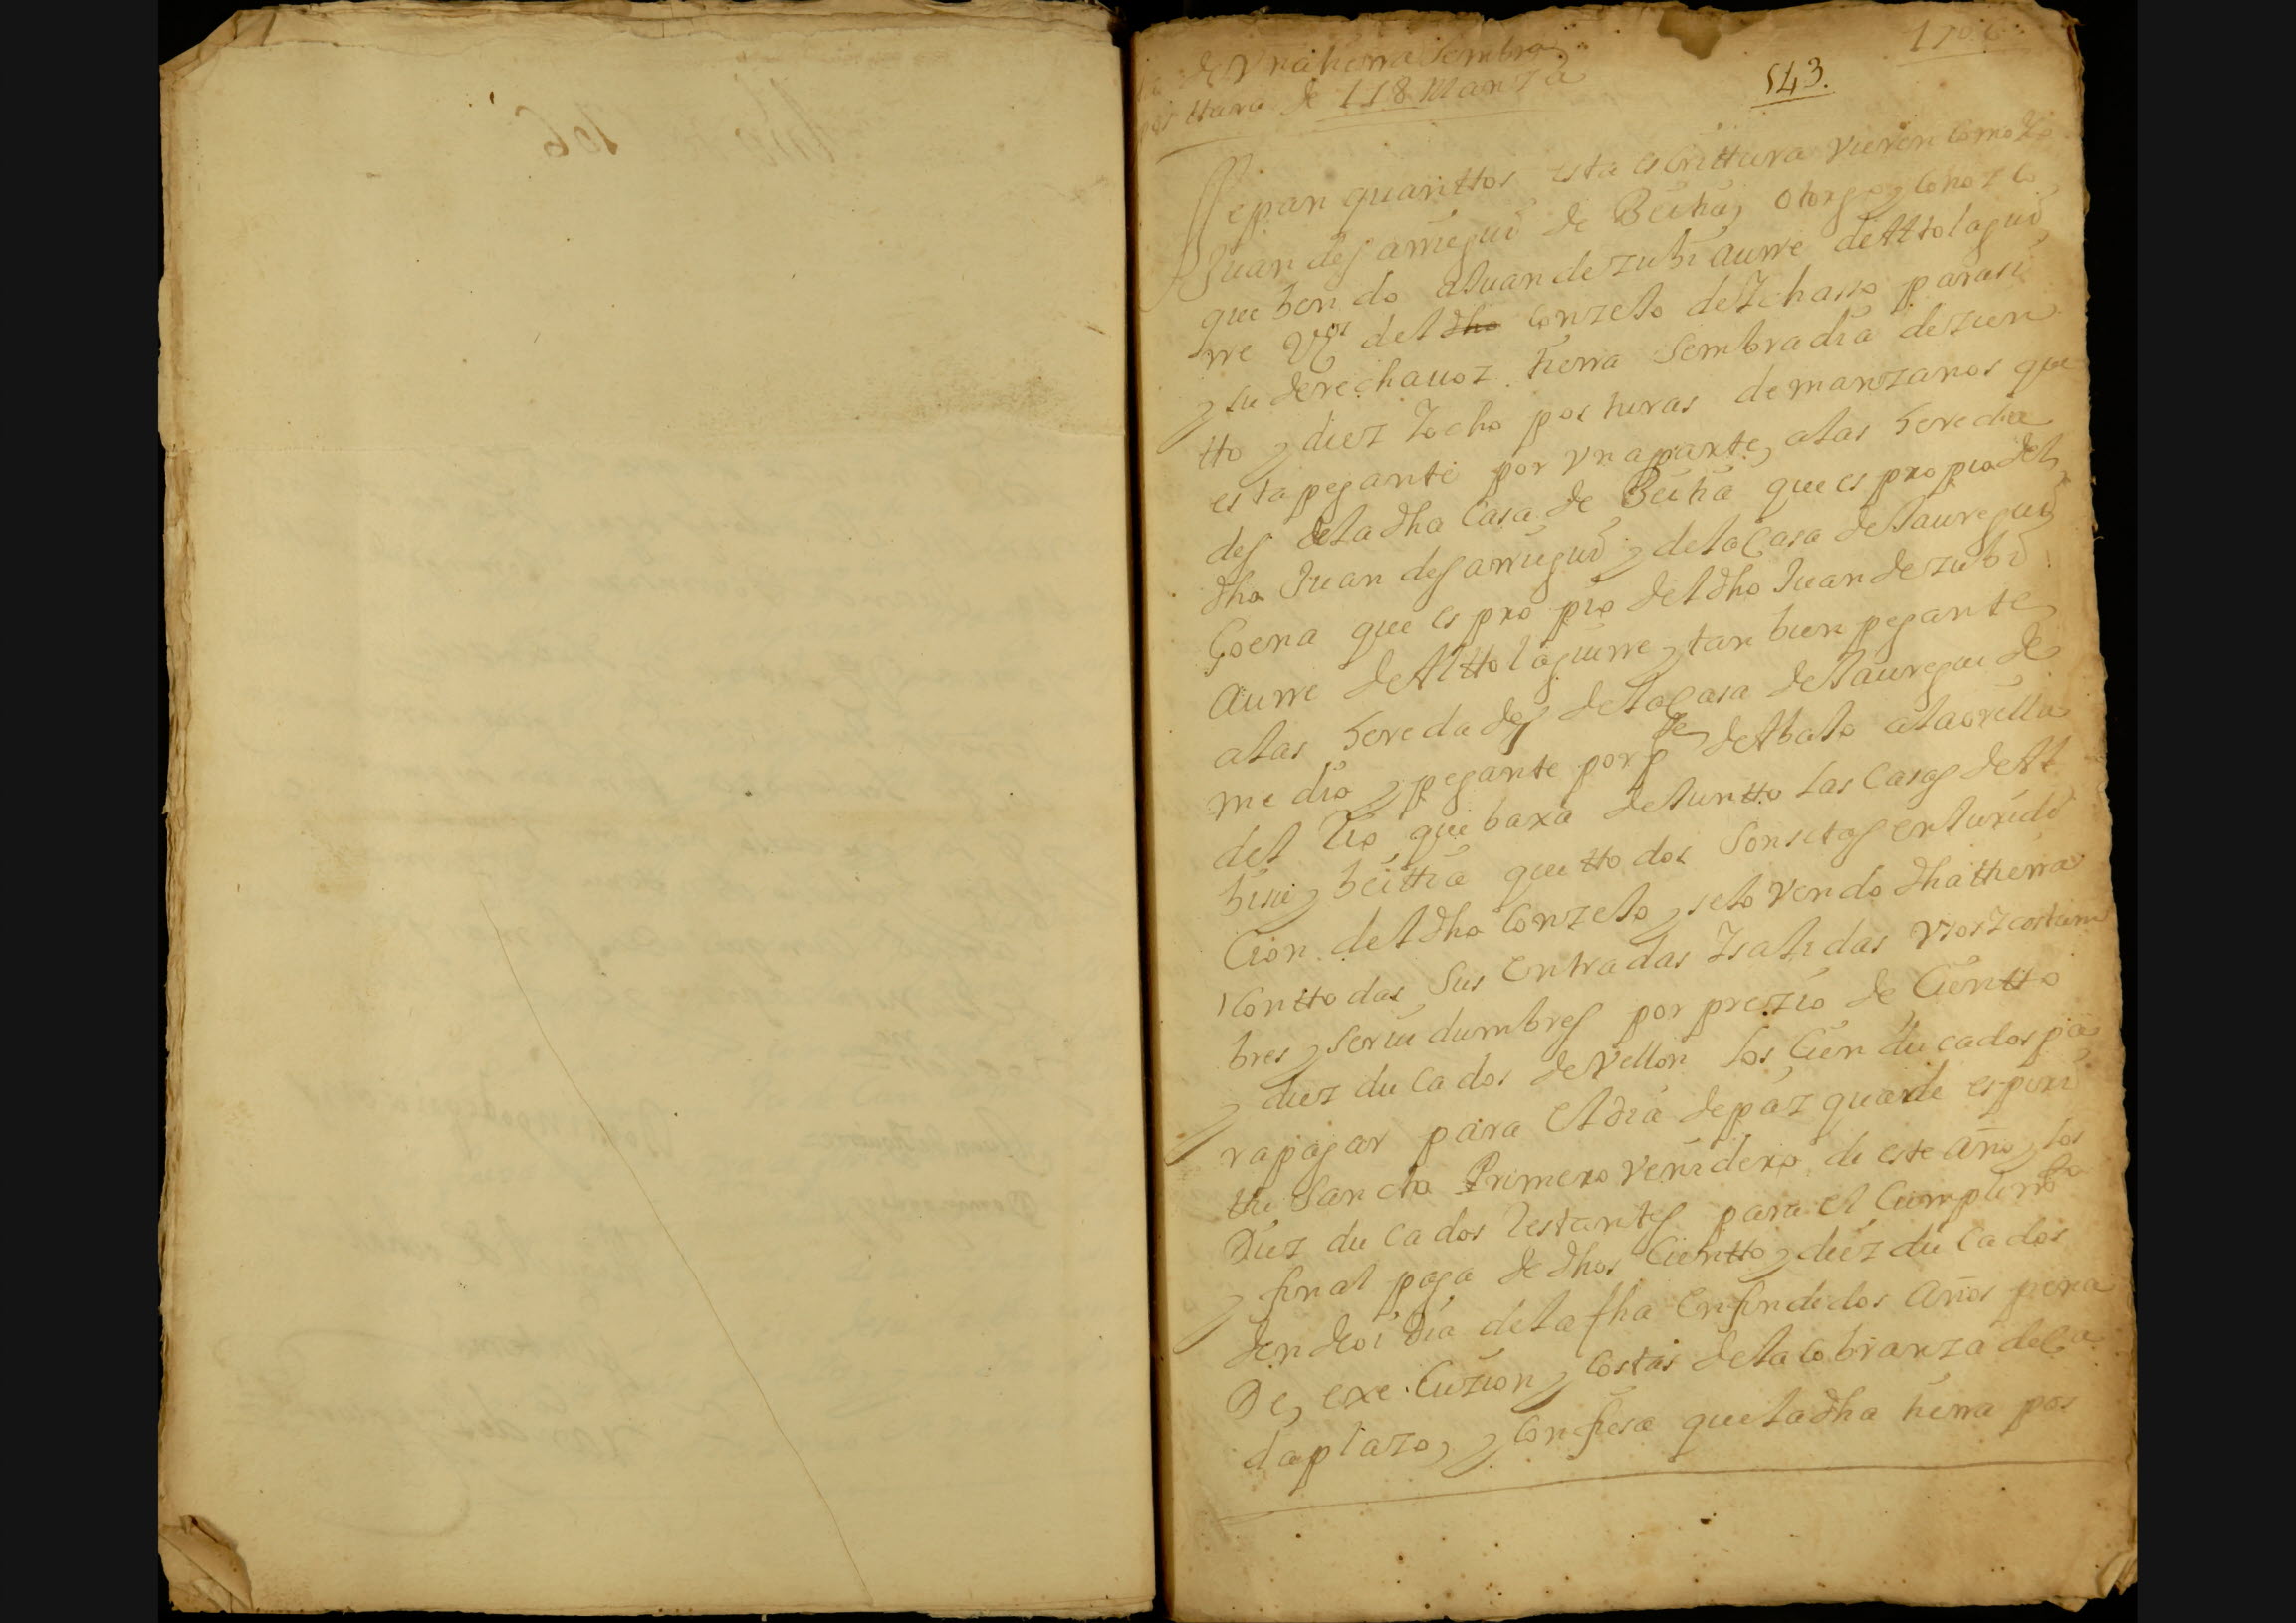 de Vna tierra Sembra
postura de 118 Manza
1706
543.
Sepan quanttos esta escrittura vieren como Yo
Juan de Jamegui de Beitia, otorgo y conozco
que bendo a Juan de Zubiaurre de Altolagui
rre Vºs del dho conzeLo de Ychasso para si
y su derecha uoz tierra Sembradia de zien
tto y diez Y ocho posturas de manzanos que
esta pegante por vna parte, a las hereda
des de la dha Casa de Beitia que es propio del
dho Juan de Jarregui y de la Casa de Jauregui
Goena que es propio del dho Juan de Zubi
aurre de Alttolaguirre y tan bien pegante
a las heredades de la Casa de Jauregui de
medio y pegante por pte de Abalo a la orilla
del Rio que baxa de Juntto las Casas de Al
bisu y beittia que ttodos Son sitos en Juridi
cion del dho ConzeLo y se lo Vendo dha therra
con ttodas Sus Entradas Y salidas vsos Y costum
bres y seruidumbres por prezio de Cientto
y diez ducados de Vellon los Cien ducados pa
ra pagar para el dia de paz quarde espiri
thu Sancto Primero Venidero de este año y los
Diez ducados restantes para el Cumplimto
y final paga de dhos Cientto y diez ducados
den de oi Dia de la fha En fin de dos años pena
De, exe.cuzion y costas de la cobranza de Ca
da plazo, y Confiesa que la dha tierra pos